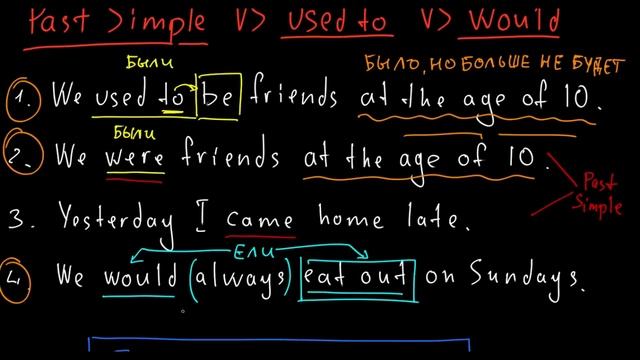 Past Simple V> used to V> would
БЫЛИ БЫЛО, НО БОЛЬШЕ НЕ БУДЕТ
1. We used to be friends at the age of 10.
БЫЛИ
2. We were friends at the age of 10.
Past Simple
3. Yesterday I came home late.
ЕЛИ
4. We would (always) eat out on Sundays.